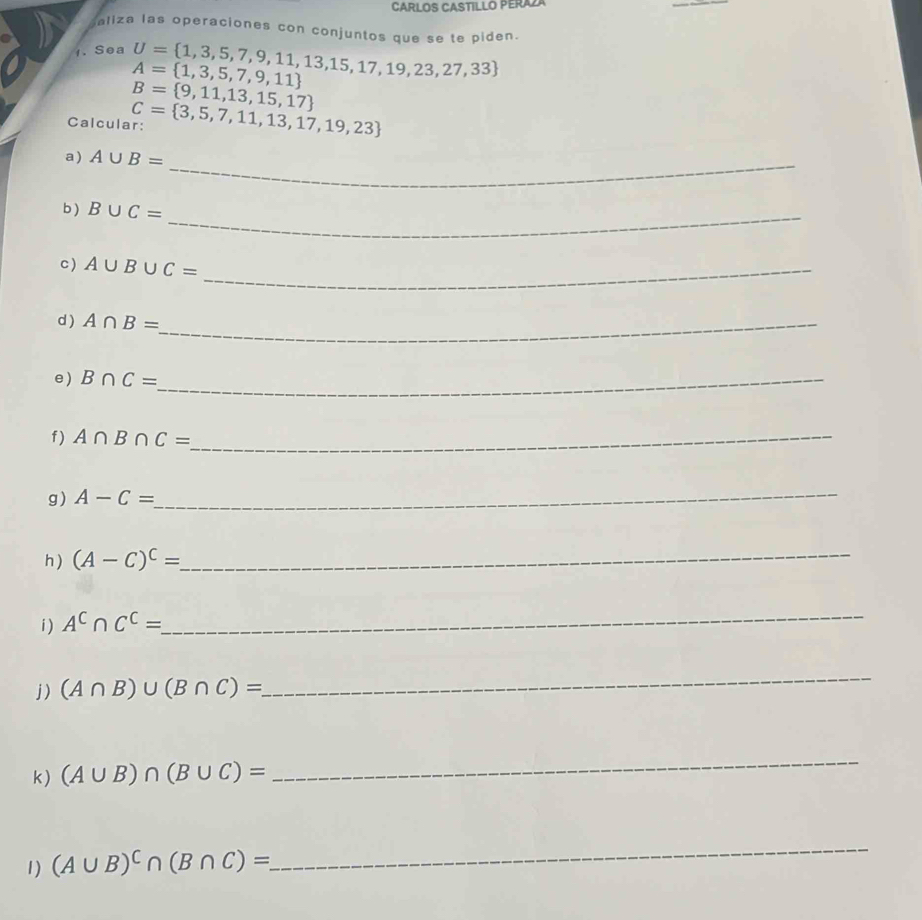 CARLOS CASTILLO PERAZA
aliza las operaciones con conjuntos que se te piden.
1. Sea U = {1, 3, 5, 7, 9, 11, 13,15, 17, 19, 23, 27, 33}
A = {1, 3, 5, 7, 9, 11}
B = {9, 11,13, 15, 17}
C = {3, 5, 7, 11, 13, 17, 19, 23}
Calcular:
a) A ∪ B =
b) B ∪ C =
c) A ∪ B ∪ C =
d) A ∩ B =
e) B ∩ C =
f) A ∩ B ∩ C =
g) A − C =
h) (A − C)ᶜ =
i) Aᶜ ∩ Cᶜ =
j) (A ∩ B) ∪ (B ∩ C) =
k) (A ∪ B) ∩ (B ∪ C) =
l) (A ∪ B)ᶜ ∩ (B ∩ C) =